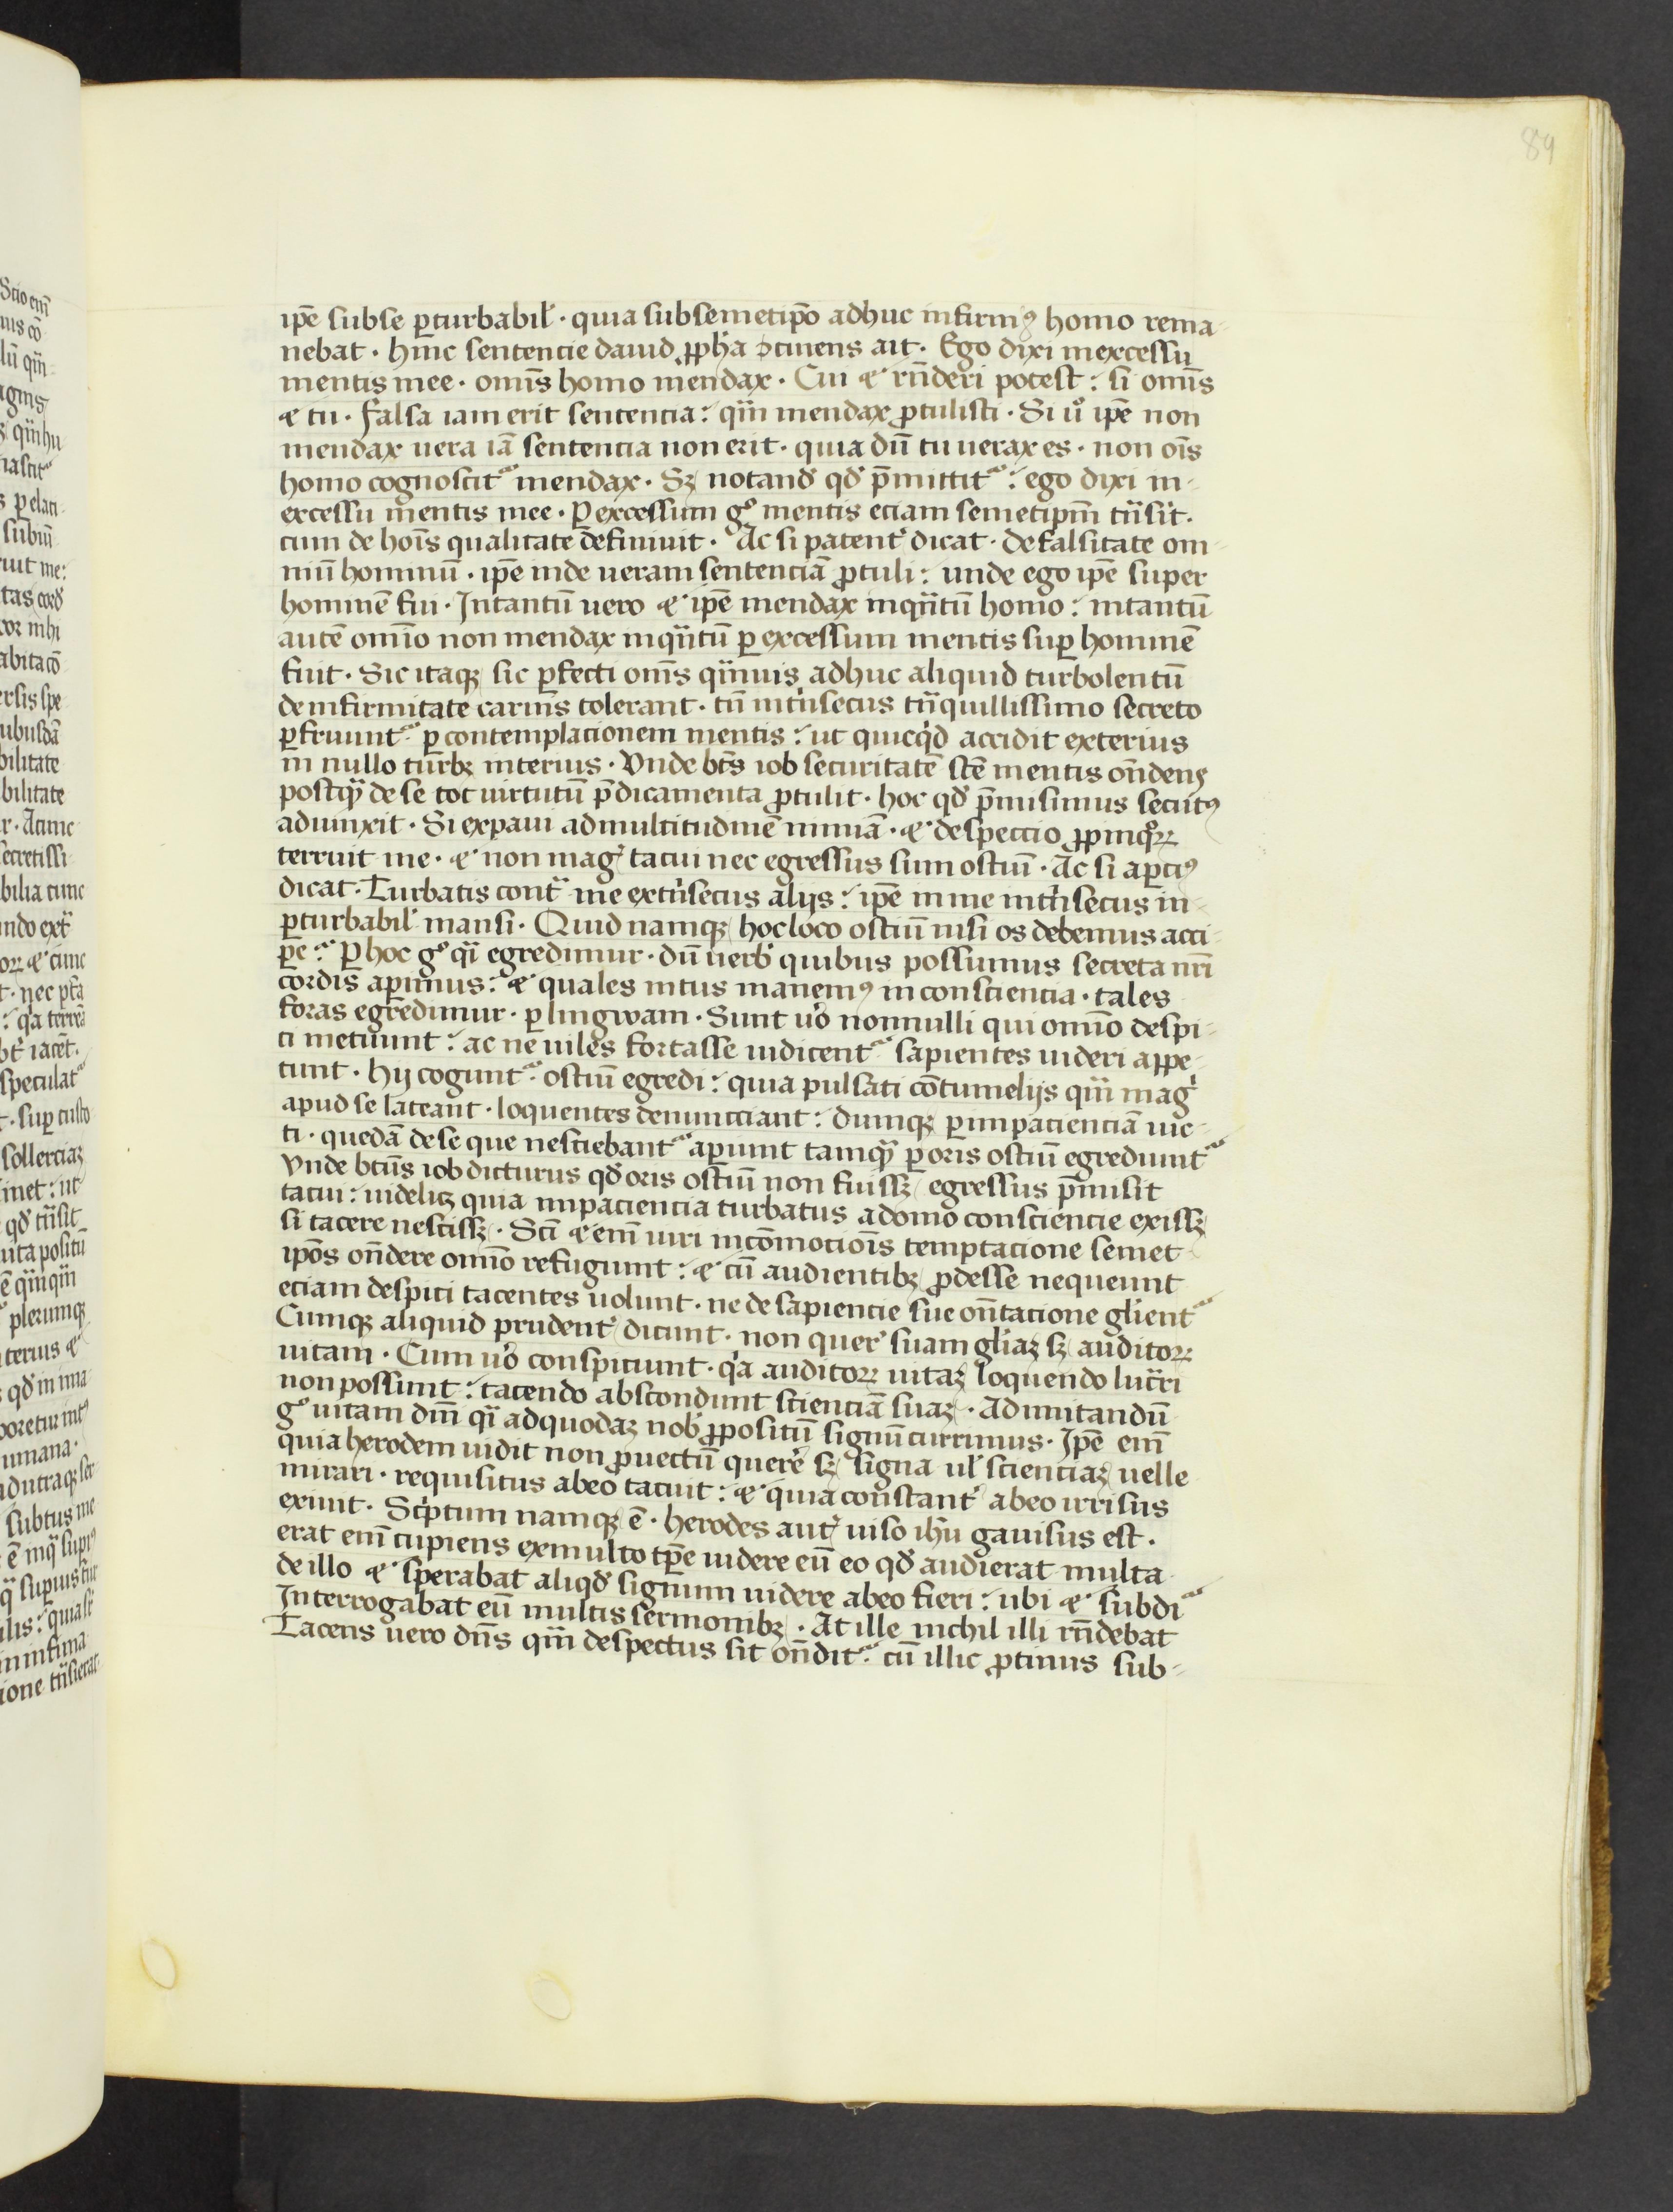 89
ip̄e subse ꝑturbabil̛ · quia subsemetip̄o adhuc infirmꝰ homo rema-
nebat · hinc sentencie dauid ꝓph̄a ↄtinens ait · Ego dixi inexcessu
mentis mee · omīs homo mendax · Cui & rn̄deri potest : si omīs
& tu · falsa iam erit sentencia : qm̄ mendax ꝓtulisti · Si uͦ ip̄e non
mendax uera iā sentencia non erit · quia dū tu uerax es · non oīs
homo cognoscit᷑ mendax · Sꝫ notand̛ qd̛ p̄mittit᷑ : ego dixi in-
excessu mentis mee · Ꝑ excessum gͦ mentis eciam semetipm̄ tn̄sijt ·
cum de hoīs qualitate definiuit · Ac si patent̛ dicat · de falsitate om-
niū hominū · ip̄e inde ueram sentenciā ꝓtuli : unde ego ip̄e super
hominē fui · Intantū uero & ip̄e mendax inqn̄tū homo : intantū
autē omīo non mendax inqn̄tū ꝑ excessum mentis suꝑ hominē
fuit · Sic itaqꝫ sic ꝑfecti omīs qn̄uis adhuc aliquid turbolentū
de infirmitate carnis tolerant · tn̄ int̛nsecus tn̄quillissimo secreto
ꝑfruunt᷑ ꝑ contemplacionem mentis : ut quicqͥd accidit exterius
in nullo turbꝫ interius · Vnde bt̄s iob securitatē sc̄e mentis on̄dens
postqͣ de se tot uirtutū p̄dicamenta ꝓtulit · hoc qd̛ p̄misimus secutꝰ
adiunxit · Si expaui ad multitudinē nimiā · & despectio ꝓpinqͦꝝ
terruit me · & non mag̛ tacui nec egressus sum ostiū · Ac si aꝑciꝰ
dicat · Turbatis contͣ me ext̛nsecus alijs : ip̄e in me int̛nsecus in-
ꝑturbabil̛ mansi · Quid namqꝫ hoc loco ostiū nisi os debemus acci-
pe᷑ : Ꝑ hoc gͦ qͣi egredimur · dū uerb̛ quibus possumus secreta nr̄i
cordis aꝑimus : & quales intus manemꝰ in consciencia · tales
foras egredimur · ꝑ lingwam · Sunt uͦo nonnulli qui omīo despi-
ci metuunt : ac ne uiles fortasse iudicent᷑ sapientes uideri appe-
tunt · Hij cogunt᷑ ostiū egredi : quia pulsati cōtumelijs qm̄ mag̛
apud se lateant · loquentes denuncciant : dumqꝫ ꝑ impacienciā uic-
ti · quedā de se que nesciebant᷑ aꝑiunt tamqͣ ꝑ oris ostiū egrediunt᷑
Vnde btūs iob dicturus qd̛ oris ostiū non fuissꝫ egressus p̄misit
tacui : uidelicꝫ quia impaciencia turbatus a domo consciencie exissꝫ
si tacere nescissꝫ · Sc̄i & em̄ uiri in cōmocioīs temptacione semet
ip̄os on̄dere omīo refugiunt : & cū audientibꝫ ꝓdesse nequeunt
eciam despici tacentes uolunt · ne de sapiencie sue on̄tacione gl̄ient᷑
Cumqꝫ aliquid prudent̛ dicunt · non quer̛ suam gl̄iaꝫ sꝫ auditoꝝ
uitam · Cum uͦo conspiciunt · qͥa auditoꝝ uitaꝫ loquendo luc̄ri
non possunt : tacendo abscondunt scienciā suaꝫ · Ad imitandū
gͦ uitam dm̄ qͣi ad quodaꝫ nob̛ ꝓpositū signū currimus · Ip̄e em̄
quia herodem uidit non ꝓuectū quere᷑ sꝫ signa ul̛ scienciaꝫ uelle
mirari · requisitus ab eo tacuit : & quia constant̛ ab eo irrisus
exiuit · Scͥptum namqꝫ ē · herodes aut̛ uiso ih̄u gauisus est ·
erat em̄ cupiens ex multo tꝑe uidere eū eo qd̛ audierat multa
de illo & sperabat aliqd̛ signum uidere ab eo fieri : ubi & subdi᷑
Interrogabat eū multis sermonibꝫ · At ille nichil illi rn̄debat
Tacens uero dn̄s qm̄ despectus sit on̄dit᷑ cū illic ꝓtinus sub-